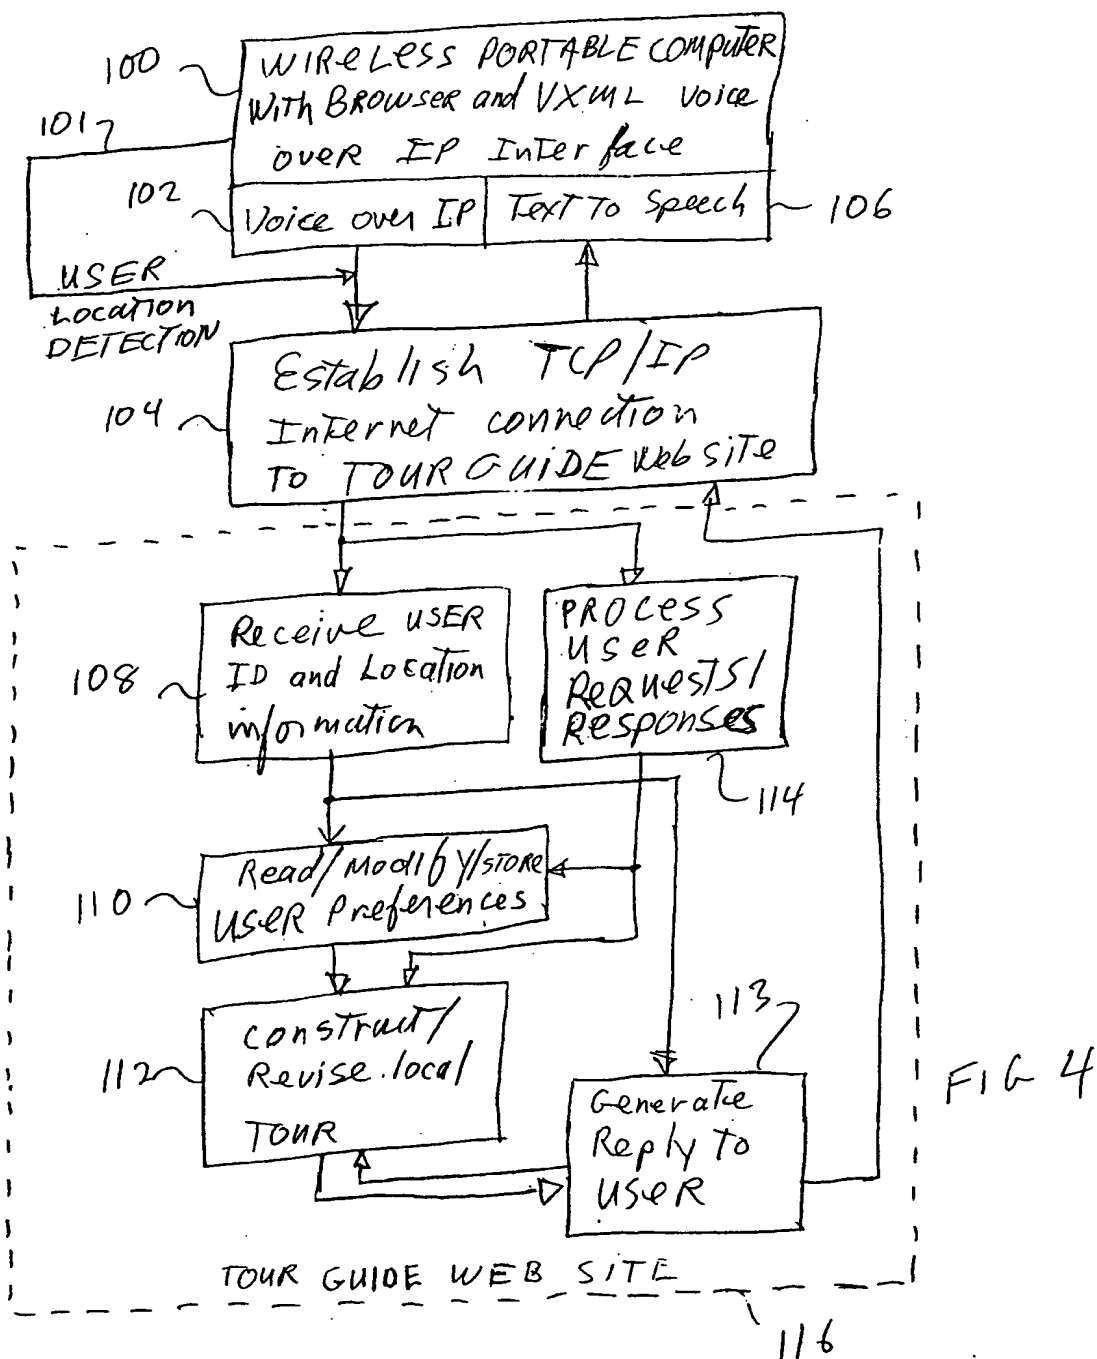 100
WIRELESS PORTABLE COMPUTER
WITH BROWSER and VXML VOICE
OVER IP Interface
101
102
Voice over IP
Text To Speech
106
USER
Location
DETECTION
Establish TCP/IP
Internet connection
TO TOUR GUIDE Web site
104
Receive USER
ID and Location
information
108
PROCESS
USER
Requests/
Responses
114
Read/Modify/STORE
USER Preferences
110
Construct/
Revise local
TOUR
112
113
Generate
Reply To
USER
FIG 4
TOUR GUIDE WEB SITE
116